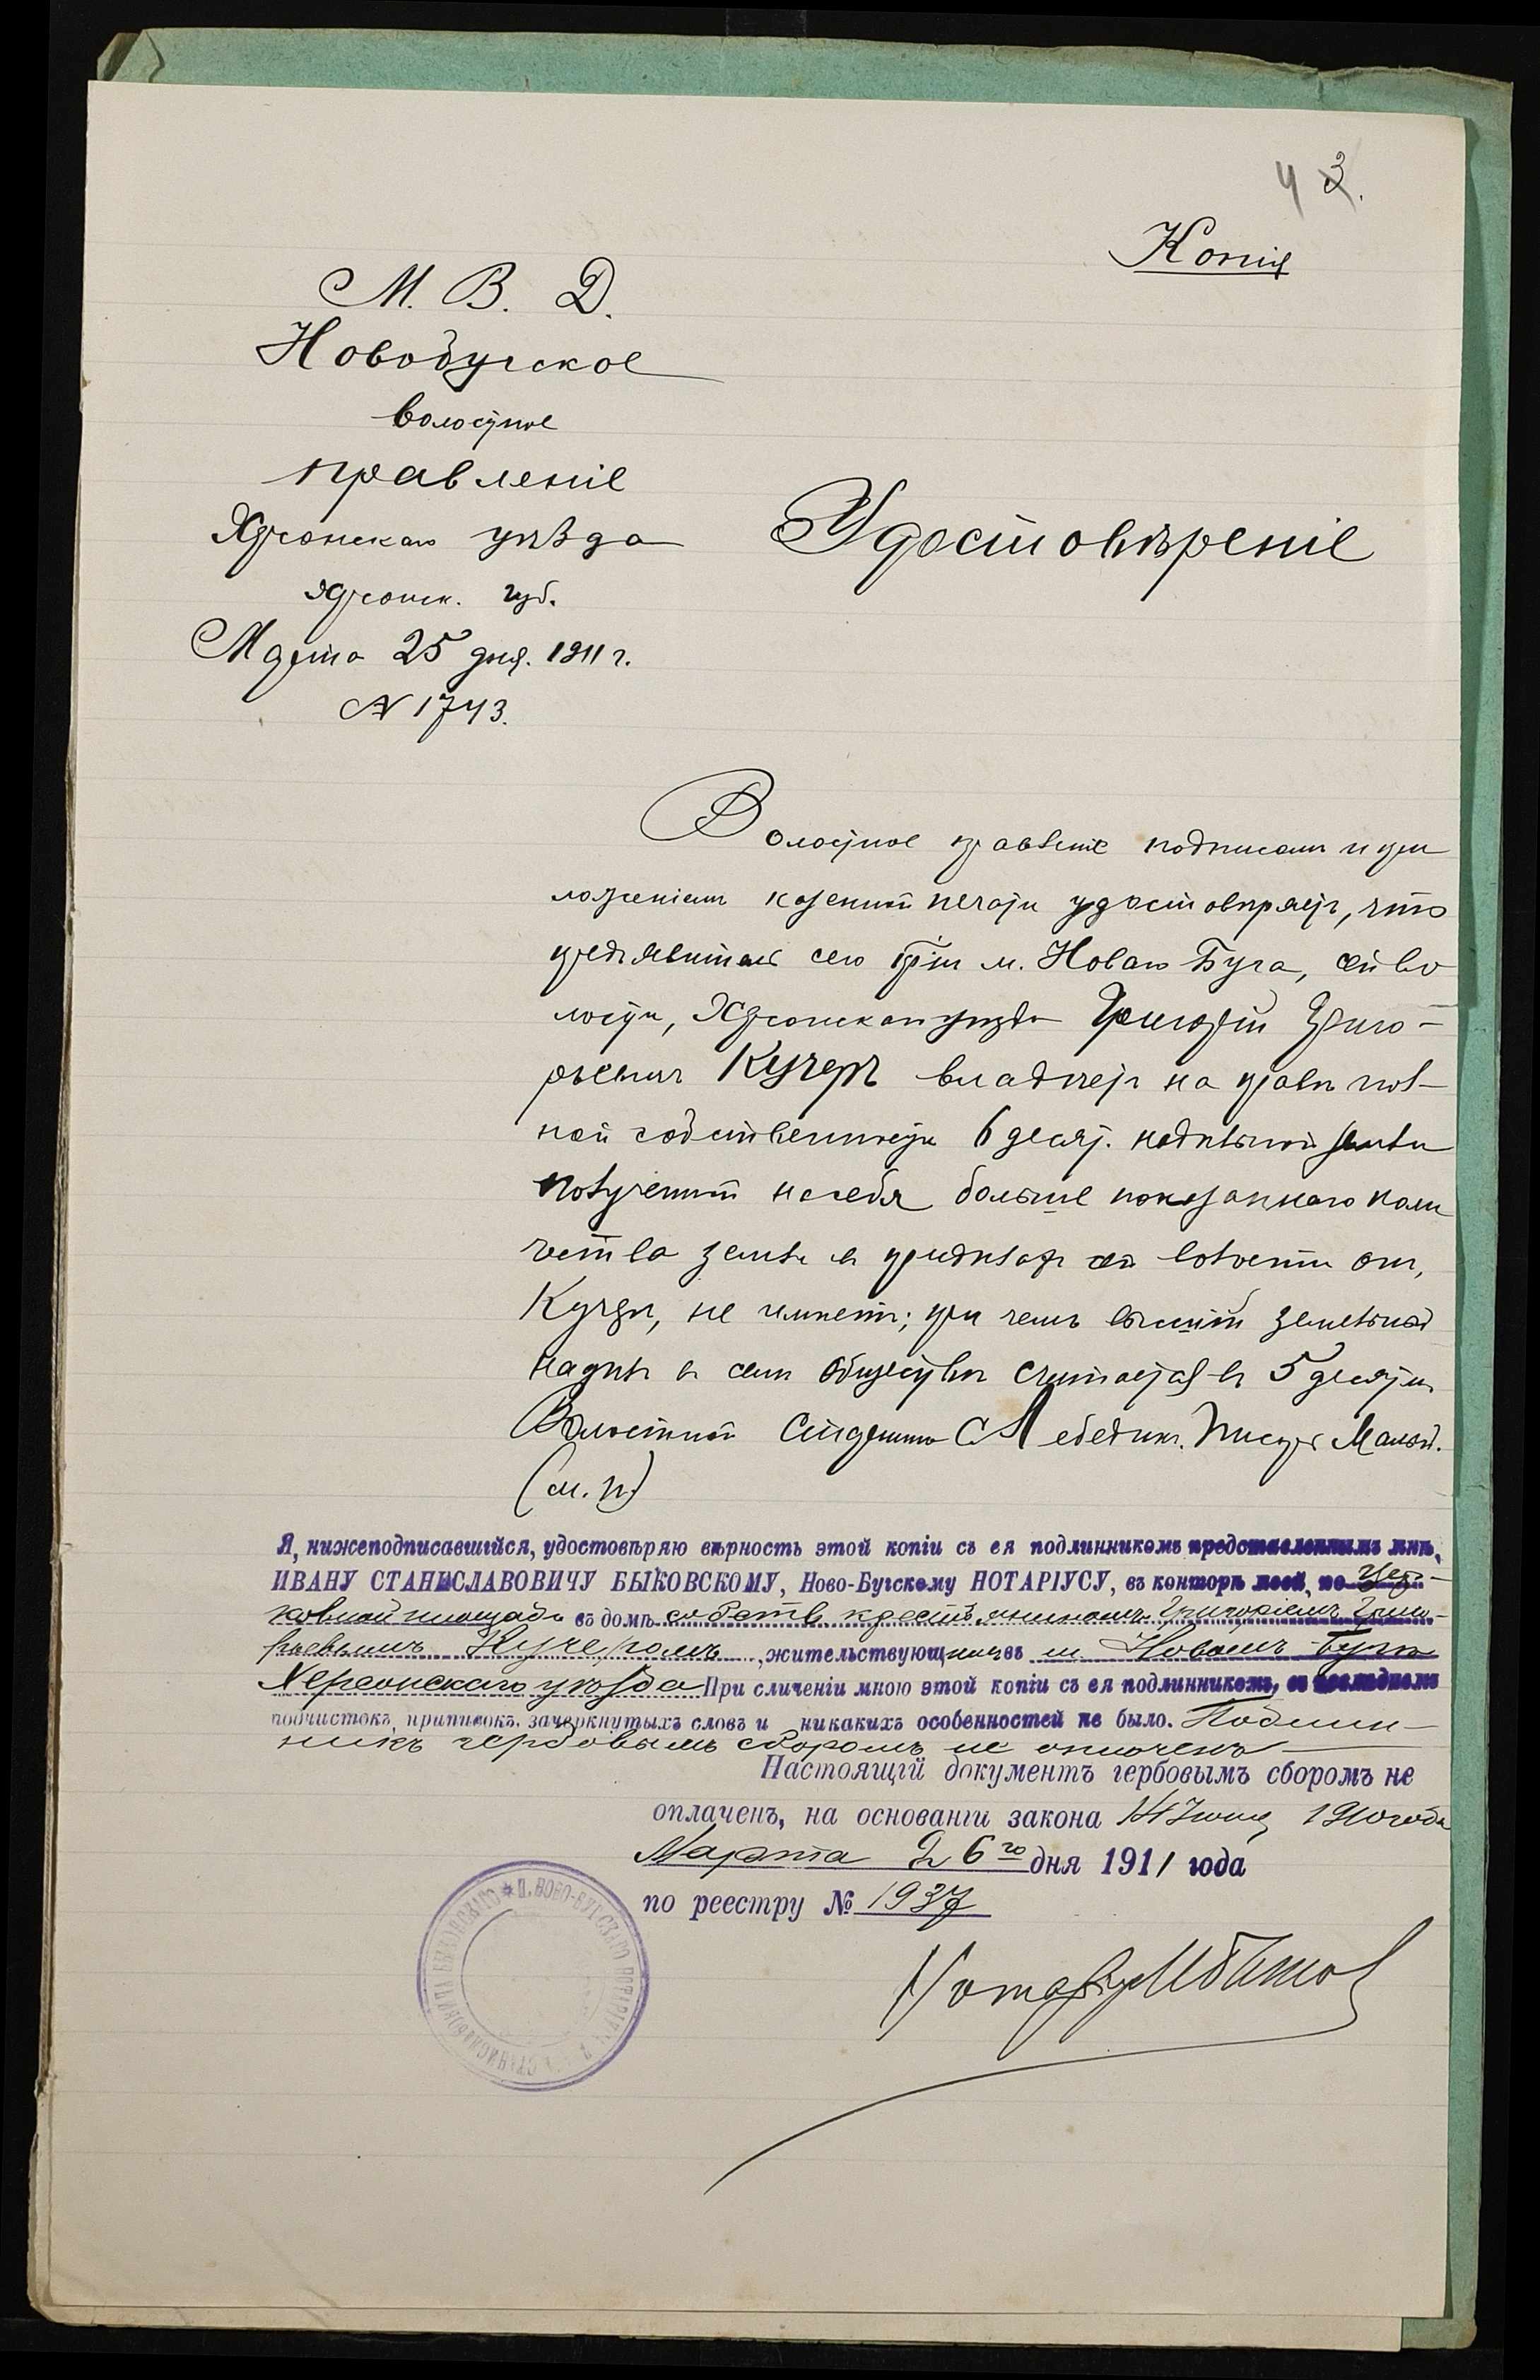 4 3.
Копія
М. В. Д.
Новобугское
волостное
правленіе
Херсонскаго уѣзда
Херсонск. губ.
Марта 25 дня. 1911 г.
№ 1743.
Удостовѣреніе
Волостное правленіе подписомъ и при
ложеніемъ казенной печати удостовѣряетъ, что
предъявитель сего кр-нъ м. Новаго Буга, сей во
лости, Херсонскаго уѣзда Григорій Григо-
рьевичъ Кучеръ владѣетъ на правѣ пол-
ной собственности 6 десят. надѣльной земли
полученной на себя больше показаннаго коли
чества земли въ предѣлахъ сей волости онъ,
Кучеръ, не имѣетъ; при чемъ высшій земельный
надѣлъ въ семъ обществѣ считается въ 5 десятинъ
Волостной Старшина С Лебедикъ. Писарь
(м. п.)
Я, нижеподписавшійся, удостовѣряю вѣрность этой копіи съ ея подлинникомъ представленнымъ мнѣ,
ИВАНУ СТАНИСЛАВОВИЧУ БЫКОВСКОМУ, Ново-Бугскому НОТАРІУСУ, въ конторѣ моей, по Цер-
ковной площади въ домѣ собств крестьяниномъ Григоріемъ Григо-
рьевымъ Кучеромъ, жительствующимъ въ м. Новомъ Бугѣ
Херсонскаго уѣзда При сличеніи мною этой копіи съ ея подлинникомъ, въ послѣднемъ
подчистокъ, приписокъ, зачеркнутыхъ словъ и никакихъ особенностей не было. Подлин-
никъ гербовымъ сборомъ не оплоченъ
Настоящій документъ гербовымъ сборомъ не
оплаченъ, на основаніи закона 14 Іюня 1910 года
Марта 26го дня 1911 года
по реестру № 1937
Нотаріусъ